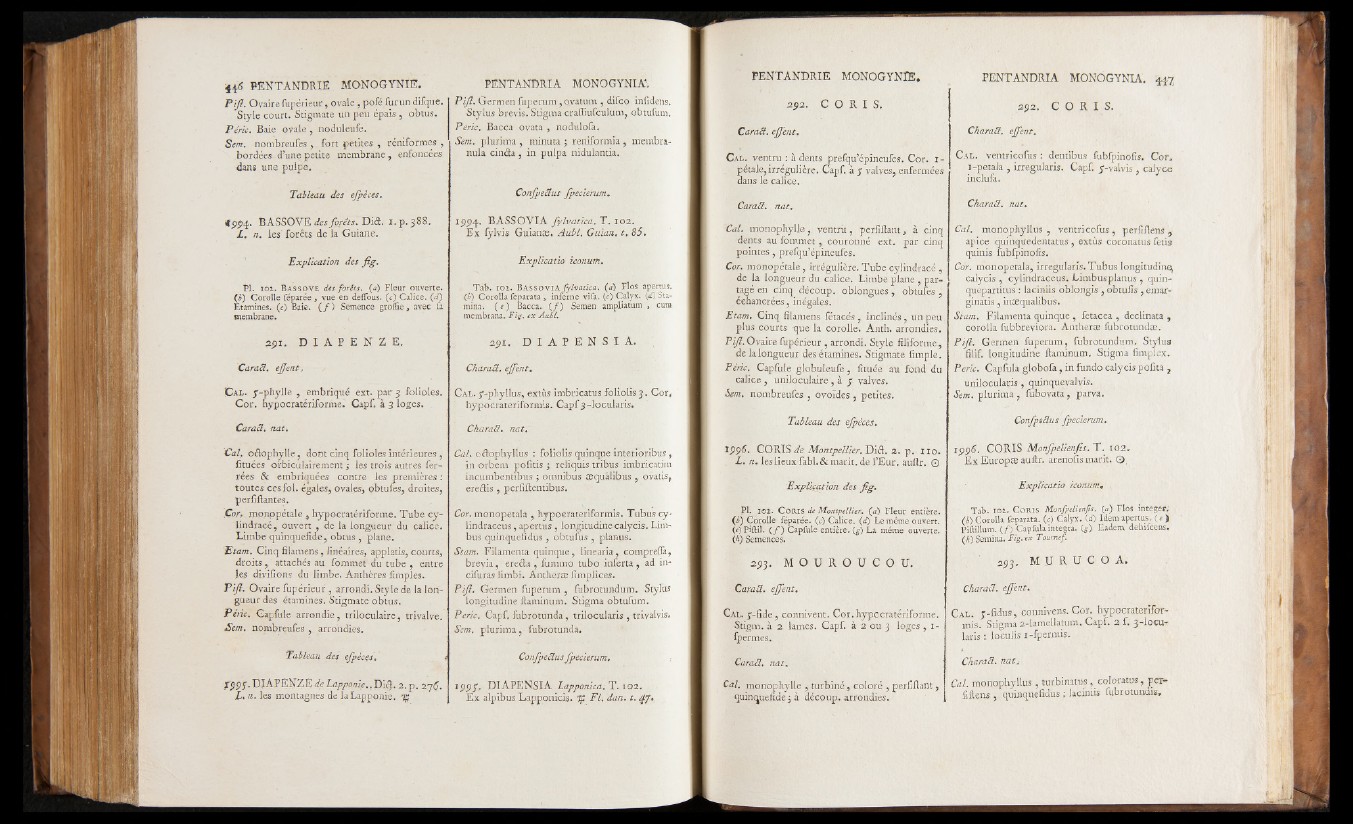 446 PENTANDRIE MONOGYNIE.
Pist. Ovaire supérieur, ovale, posé sur un disque.
Style court. Stigmate un peu épais, obtus.
Péric. Baie ovale, noduleuse.
Sem. nombreuses, fort petites, réniformes,
bordées d'une petite membrane, enfoncées
dans une pulpe.
Tableau des espèces.
1994. BASSOVE des forêts. Dict. 1. p. 388.
L. n. les forêts de la Guiane.
Explication des fig.
Pl. 102. BASSOVE des forêts. (a) Fleur ouverte.
(b) Corolle séparée, vue en dessous. (c) Calice. (d)
Etamines. (e) Baie. (f) Semence grossie, avec sa
membrane.
291. DIAPENZE.
Caract. essent.
CAL. 5-phylle, embriqué ext. par 3 folioles.
Cor. hypocratériforme. Caps. à 3 loges.
Caract. nat.
Cal. octophylle, dont cinq folioles intérieures,
situées orbiculairement; les trois autres ser-
rées & embriquées contre les premières:
toutes ces fol. égales, ovales, obtuses, droites,
persistantes.
Cor. monopétale, hypocratériforme. Tube cy-
lindracé, ouvert, de la longueur du calice.
Limbe quinquefide, obtus, plane.
Etam. Cinq filamens, linéaires, applatis, courts,
droits, attachés au sommet du tube, entre
les divisions du limbe. Anthères simples.
Pist. Ovaire supérieur, arrondi. Style de la lon-
gueur des étamines. Stigmate obtus.
Péric. Capsule arrondie, triloculaire, trivalve.
Sem. nombreuses, arrondies.
Tableau des espèces.
1995. DIAPENZE de Lapponie. Dict. 2. p. 276.
L. n. les montagnes de la Lapponie. ♃
PENTANDRIA MONOGYNIA.
Pist. Germen superum, ovatum, disco insidens.
Stylus brevis. Stigma crassiusculum, obtusum.
Peric. Bacca ovata, nodulosa.
Sem. plurima, minuta; reniformia, membra-
nula cincta, in pulpa nidulantia.
Conspectus specierum.
1994. BASSOVIA sylvatica. T. 102.
Ex sylvis Guianæ. Aubl. Guian. t. 85.
Explicatio iconum.
Tab. 102. BASSOVIA sylvatica. (a) Flos apertus.
(b) Corolla separata, inferne visa. (c) Calyx. (d) Sta-
mina. (e) Bacca. (f) Semen ampliatum, cum
membrana. Fig. ex Aubl.
291. DIAPENSIA.
Charact. essent.
CAL. 5-phyllus, extùs imbricatus foliolis 3. Cor.
hypocrateriformis. Caps 3-locularis.
Charact. nat.
Cal. octophyllus: foliolis quinque interioribus,
in orbem positis; reliquis tribus imbricatim
incumbentibus; omnibus æqualibus, ovatis,
erectis, persistentibus.
Cor. monopetala, hypocrateriformis. Tubus cy-
lindraceus, apertus, longitudine calycis. Lim-
bus quinquefidus, obtusus, planus.
Stam. Filamenta quinque, linearia, compressa,
brevia, erecta, summo tubo inserta, ad in-
cisuras limbi. Antheræ simplices.
Pist. Germen superum, subrotundum. Stylus
longitudine staminum. Stigma obtusum.
Peric. Caps. subrotunda, trilocularis, trivalvis.
Sem. plurima, subrotunda.
Conspectus specierum.
1995. DIAPENSIA Lapponica. T. 102.
Ex alpibus Lapponicis. ♃ Fl. dan. t. 47.
PENTANDRIE MONOGYNIE.
292. CORIS.
Caract. essent.
CAL. ventru: à dents presqu'épineuses. Cor. 1-
pétale, irrégulière. Caps. à 5 valves, enfermées
dans le calice.
Caract. nat.
Cal. monophylle, ventru, persistant, à cinq
dents au sommet, couronné ext. par cinq
pointes, presqu'épineuses.
Cor. monopétale, irrégulière. Tube cylindracé,
de la longueur du calice. Limbe plane, par-
tagé en cinq découp. oblongues, obtuses,
échancrées, inégales.
Etam. Cinq filamens sétacés, inclinés, un peu
plus courts que la corolle. Anth. arrondies.
Pist. Ovaire supérieur, arrondi. Style filiforme,
de la longueur des étamines. Stigmate simple.
Péric. Capsule globuleuse, située au fond du
calice, uniloculaire, à 5 valves.
Sem. nombreuses, ovoïdes, petites.
Tableau des espèces.
1996. CORIS de Montpellier. Dict. 2. p. 110.
L. n. les lieux sabl. & marit. de l'Eur. austr. ☉
Explication des fig.
Pl. 102. CORIS de Montpellier. (a) Fleur entière.
(b) Corolle séparée. (c) Calice. (d) Le même ouvert.
(e) Pistil. (f) Capsule entière. (g) La même ouverte.
(h) Semences.
293. MOUROUCOU.
Caract. essent.
CAL. 5-fide, connivent. Cor. hypocratériforme.
Stigm. à 2 lames. Caps. à 2 ou 3 loges, 1-
spermes.
Caract. nat.
Cal. monophylle, turbiné, coloré, persistant,
quinquefide; à découp. arrondies.
PENTANDRIA MONOGYNIA. 447
292. CORIS.
Charact. essent.
CAL. ventricosus: dentibus subspinosis. Cor.
1-petala, irregularis. Caps. 5-valvis, calyce
inclusa.
Charact. nat.
Cal. monophyllus, ventricosus, persistens,
apice quinquedentatus, extùs coronatus setis
quinis subspinosis.
Cor. monopetala, irregularis. Tubus longitudine
calycis, cylindraceus. Limbus planus, quin-
quepartitus: laciniis oblongis, obtusis, emar-
ginatis, inæqualibus.
Stam. Filamenta quinque, setacea, declinata,
corolla subbreviora. Antheræ subrotundæ.
Pist. Germen superum, subrotundum. Stylus
filif. longitudine staminum. Stigma simplex.
Peric. Capsula globosa, in fundo calycis posita,
unilocularis, quinquevalvis.
Sem. plurima, subovata, parva.
Conspectus specierum.
1996. CORIS Monspeliensis. T. 102.
Ex Europæ austr. arenosis marit. ☉
Explicatio iconum.
Tab. 102. CORIS Monspeliensis. (a) Flos integer.
(b) Corolla separata. (c) Calyx. (d) Idem apertus. (e)
Pistillum. (f) Capsula integra. (g) Eadem dehiscens.
(h) Semina. Fig. ex Tournef.
293. MURUCOA.
Charact. essent.
CAL. 5-fidus, connivens. Cor. hypocraterifor-
mis. Stigma 2-lamellatum. Caps. 2 s. 3-locu-
laris: loculis 1-spermis.
Charact. nat.
Cal. monophyllus, turbinatus, coloratus, per-
sistens, quinquefidus; laciniis subrotundis.